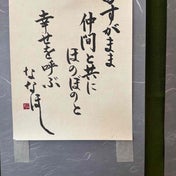 すがまま
仲間と共に
ほのぼのと
幸せを呼ぶ
ななほし